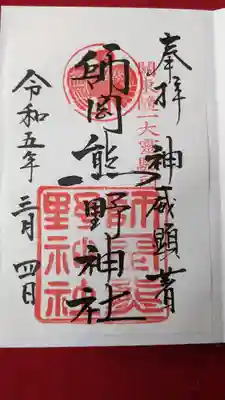 奉拝
神威顕著
関東随一大霊験所
師岡熊野神社
令和五年
三月四日
師岡熊
野神社